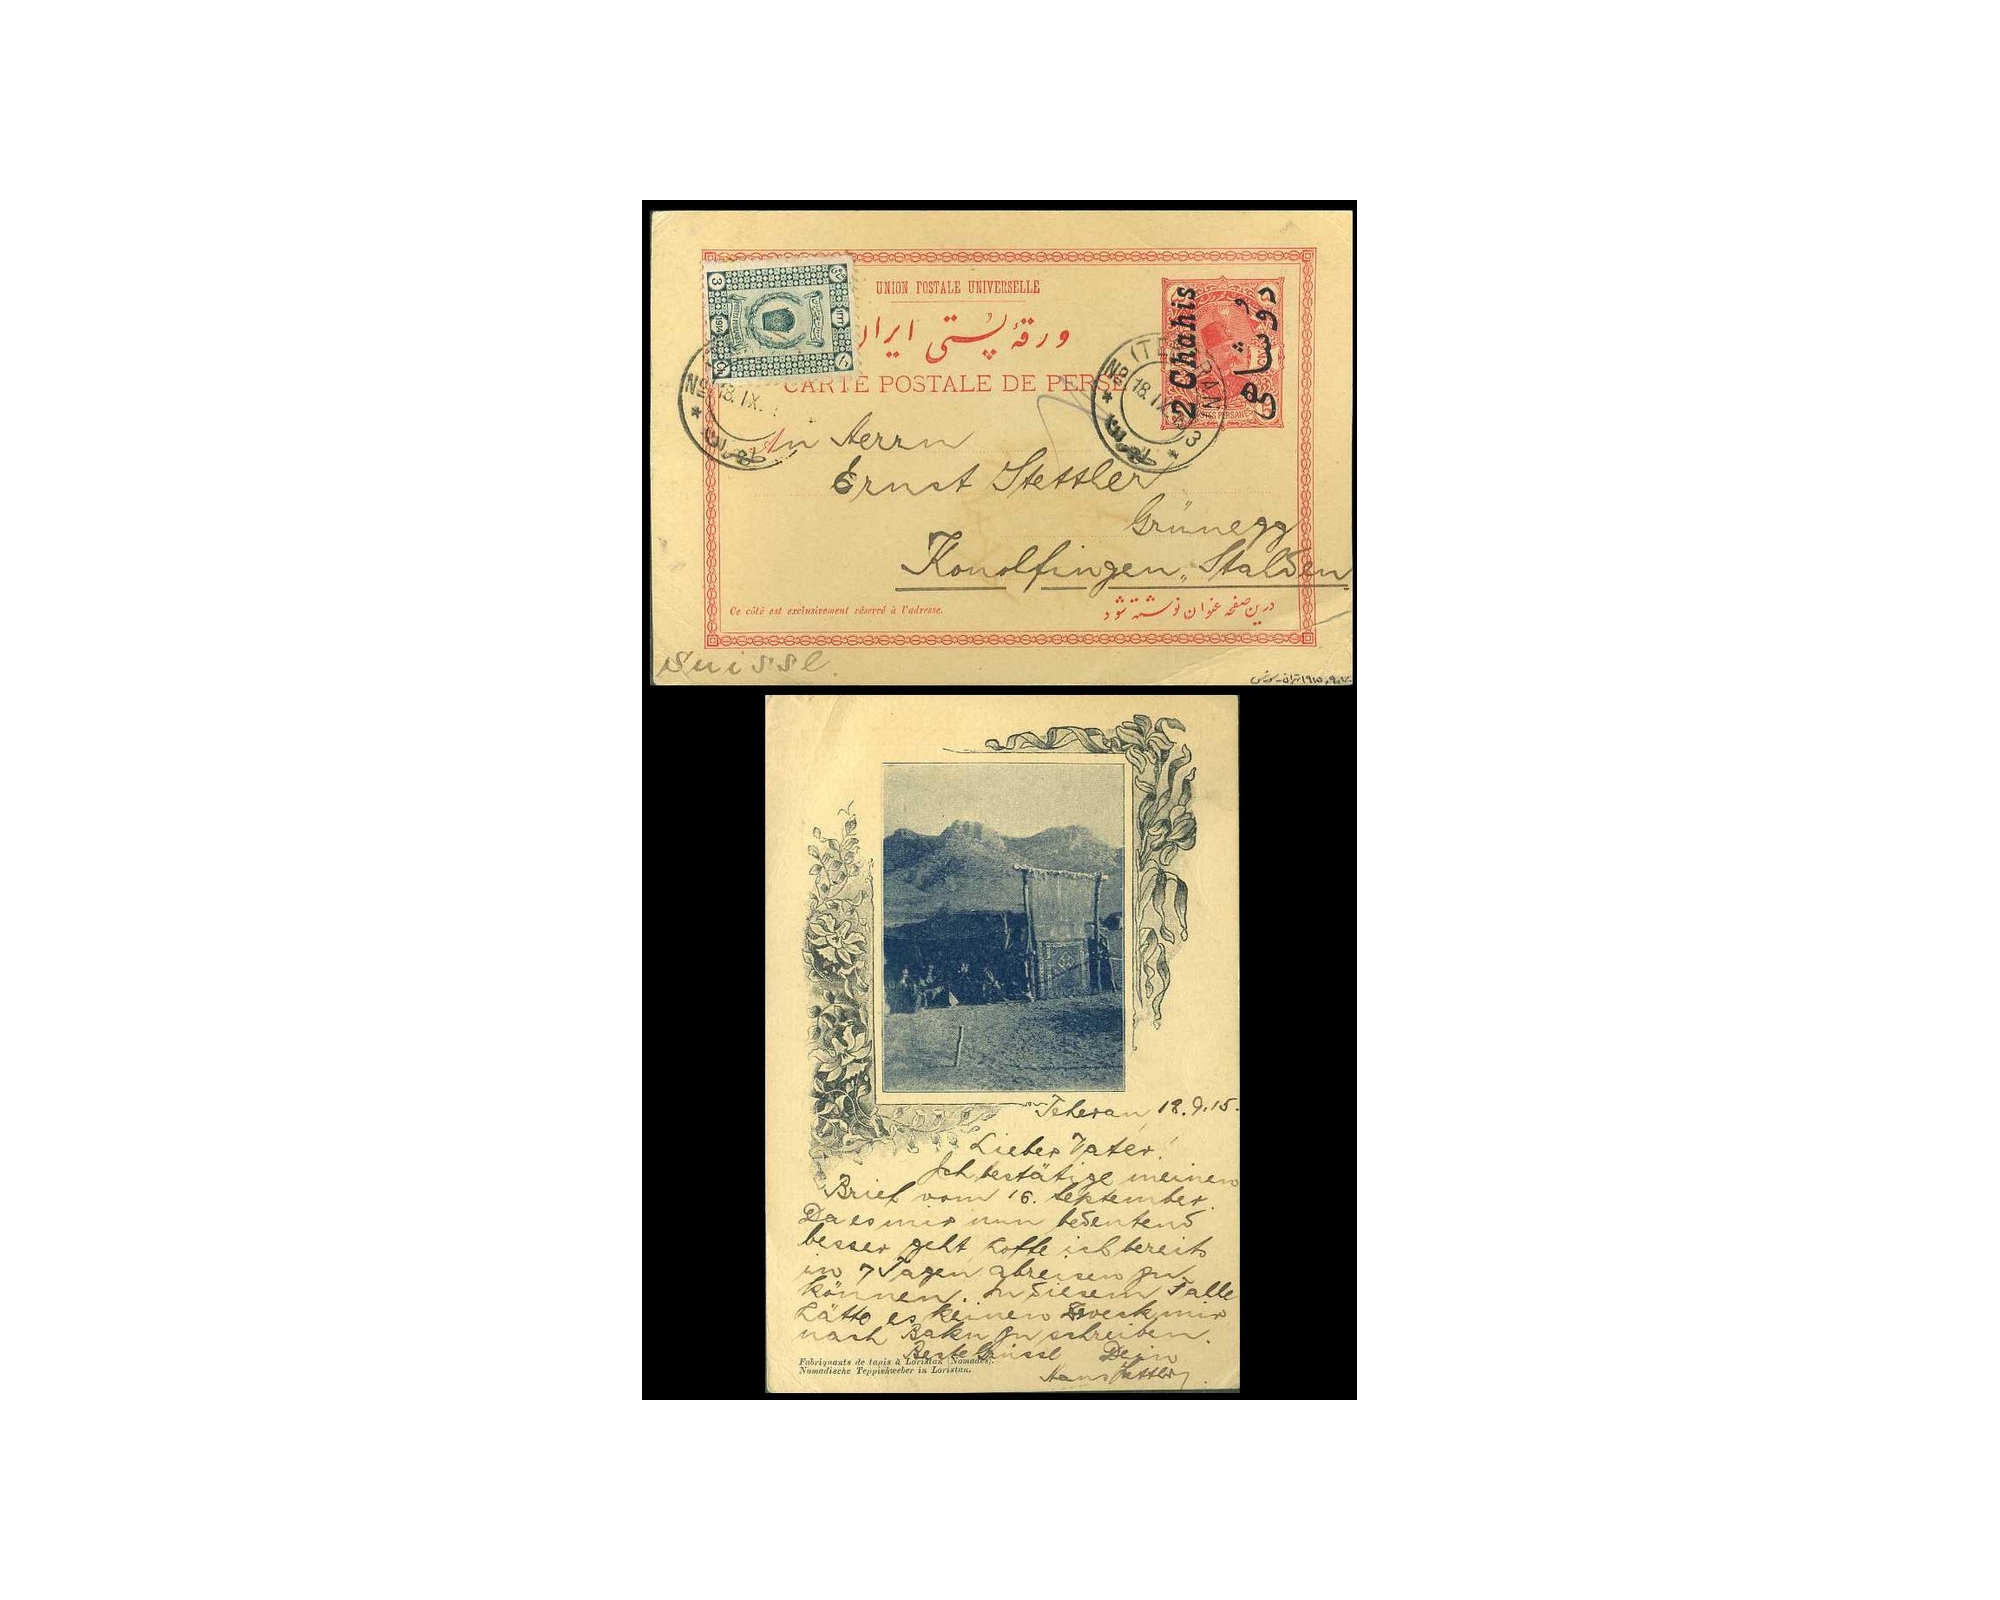 UNION POSTALE UNIVERSELLE
ورقهٔ پُستی ایران
CARTE POSTALE DE PERSE
3
1914
2 Chahis
دو شاهی
(TEHERAN)
No
18. IX.
18. IX.
3
An Herrn
Ernst Stettler
Grünegg
Konolfingen-Stalden
Ce côté est exclusivement réservé à l'adresse.
درین صفحه عنوان نوشته شود
Suisse.
Teheran 18.9.15.
Lieber Vater!
Ich bestätige meinen
Brief vom 16. September.
Da es mir nun bedeutend
besser geht hoffe ich bereits
in 7 Tagen abreisen zu
können. In diesem Falle
hätte es keinen Zweck mir
nach Baku zu schreiben.
Beste Grüsse Dein
Hans Stettler.
Fabriquants de tapis à Loristan (Nomades).
Nomadische Teppichweber in Loristan.